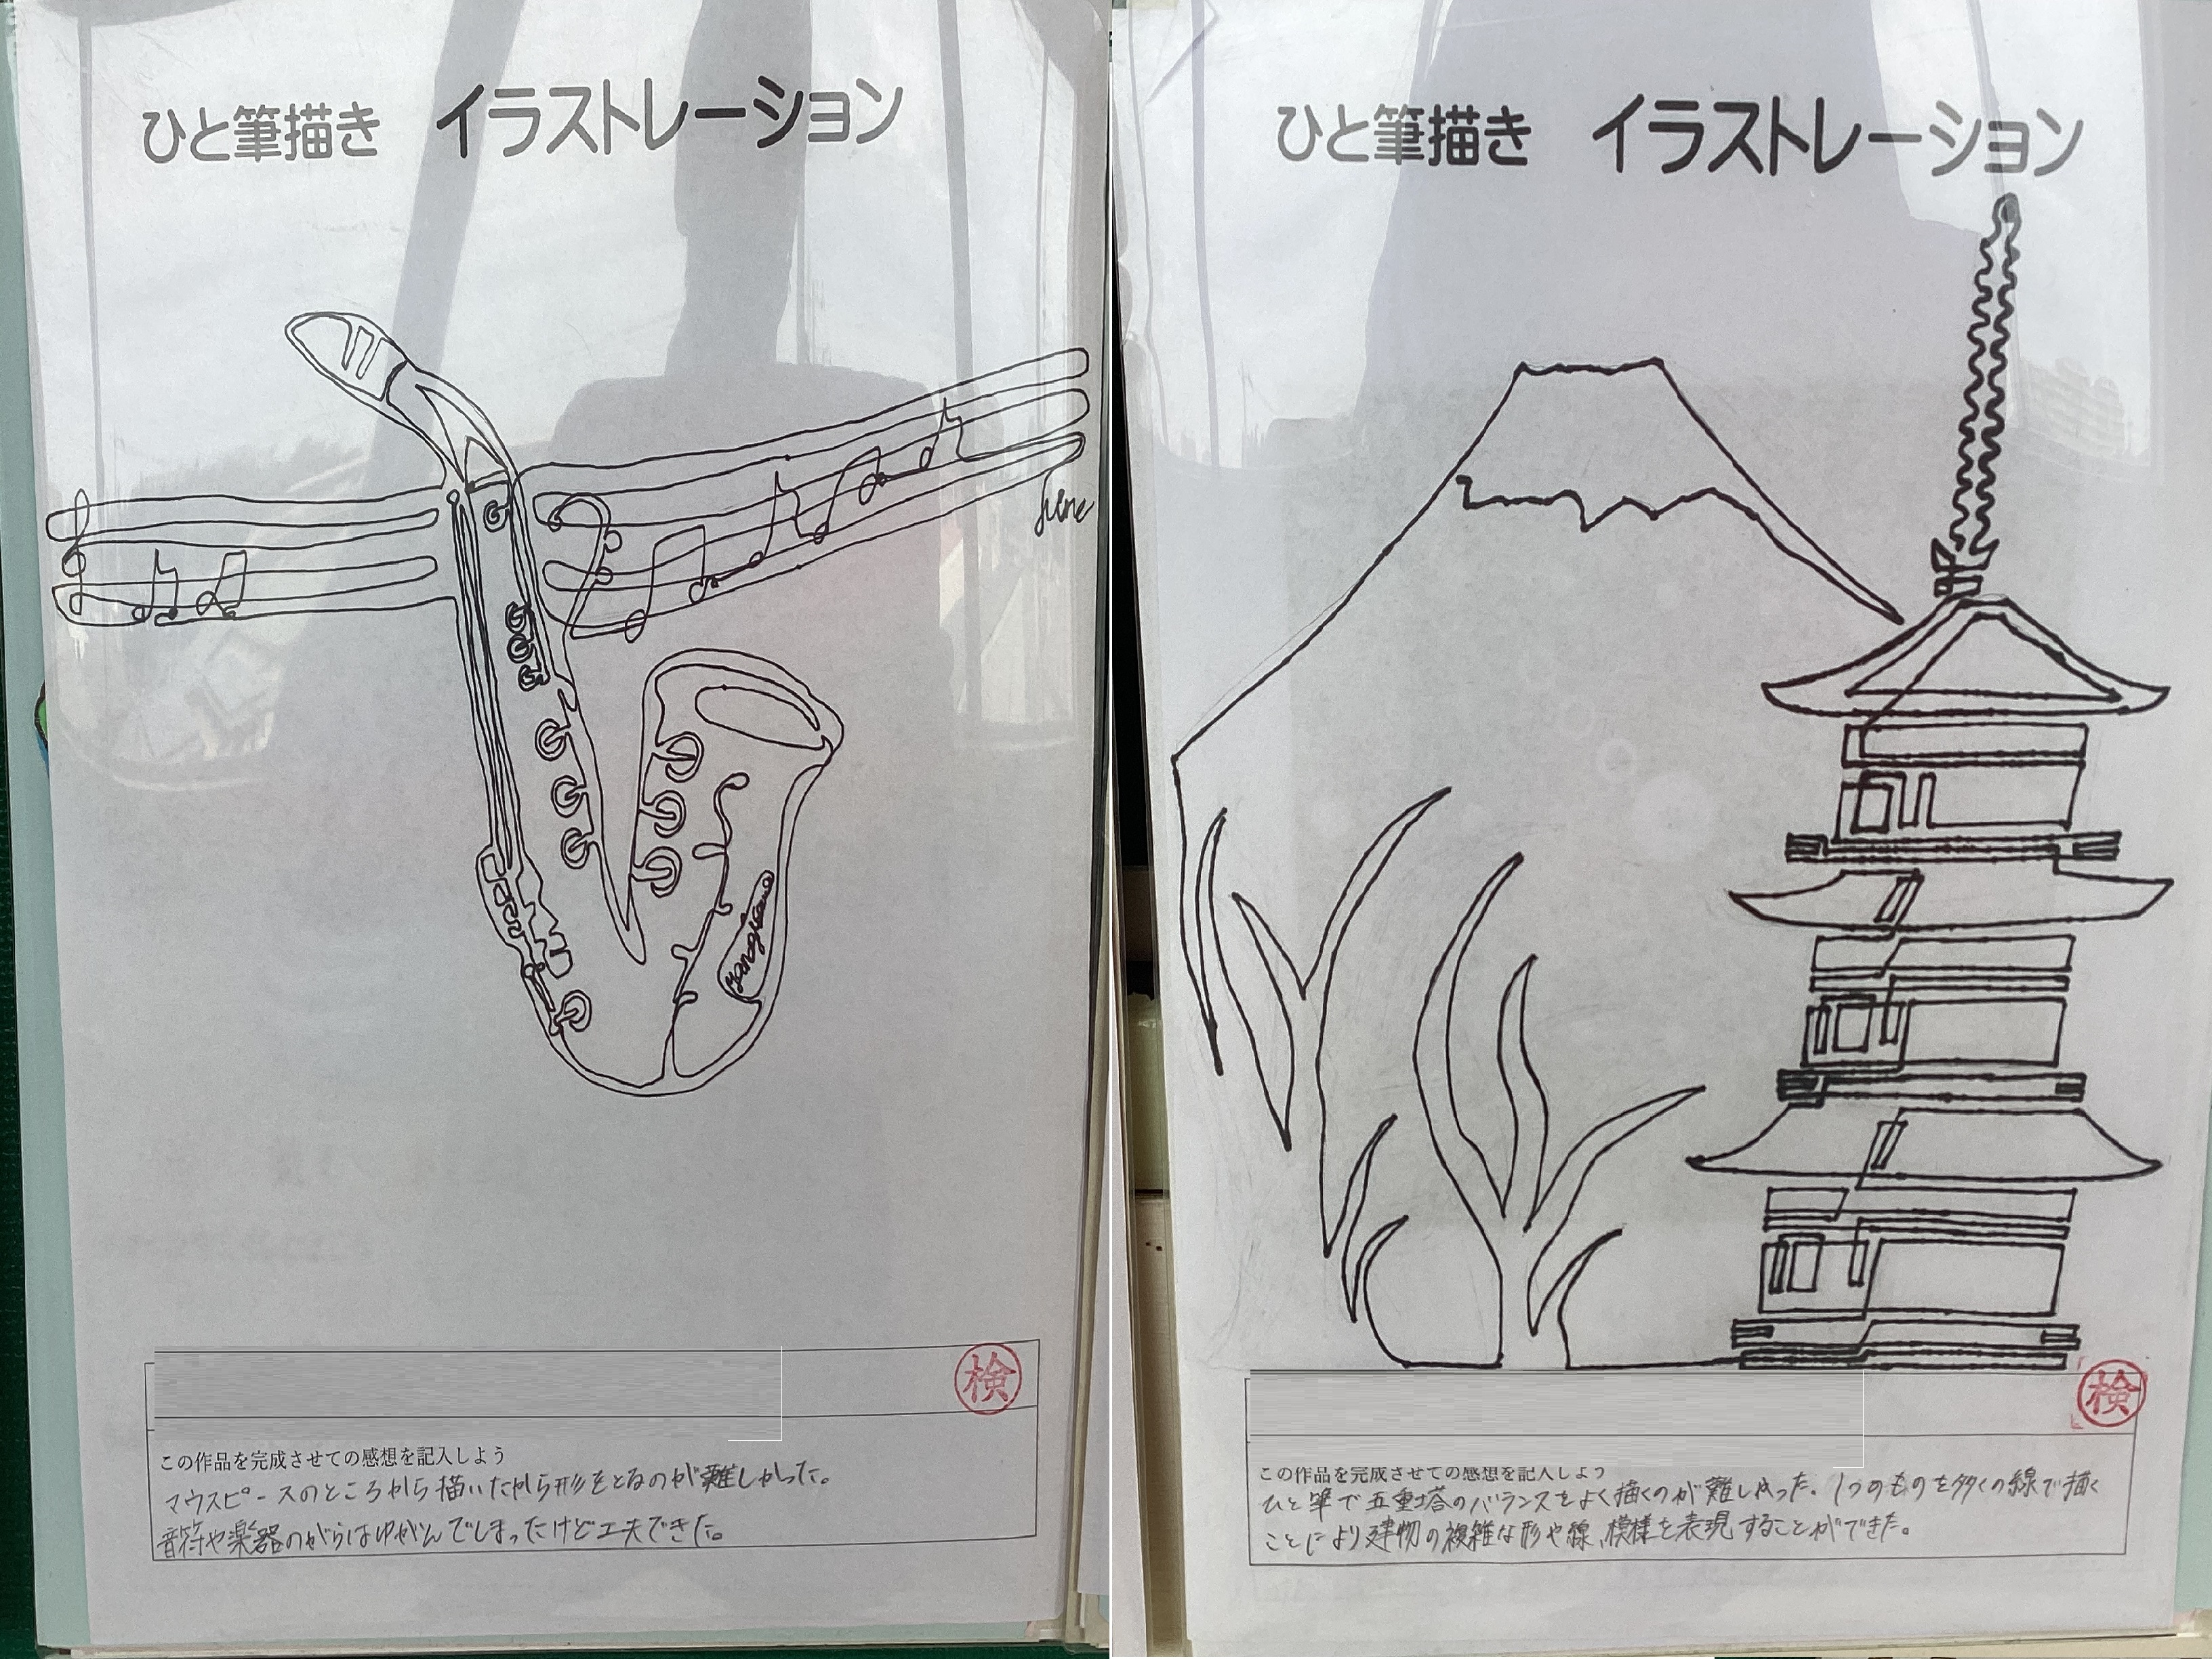 ひと筆描き イラストレーション
June
yanagisawa
検
この作品を完成させての感想を記入しよう
マウスピースのところから描いたから形をとるのが難しかった。
音符や楽器のがらはゆがんでしまったけど工夫できた。
ひと筆描き イラストレーション
検
この作品を完成させての感想を記入しよう
ひと筆で五重塔のバランスをよく描くのが難しかった。1つのものを多くの線で描く
ことにより建物の複雑な形や線、模様を表現することができた。